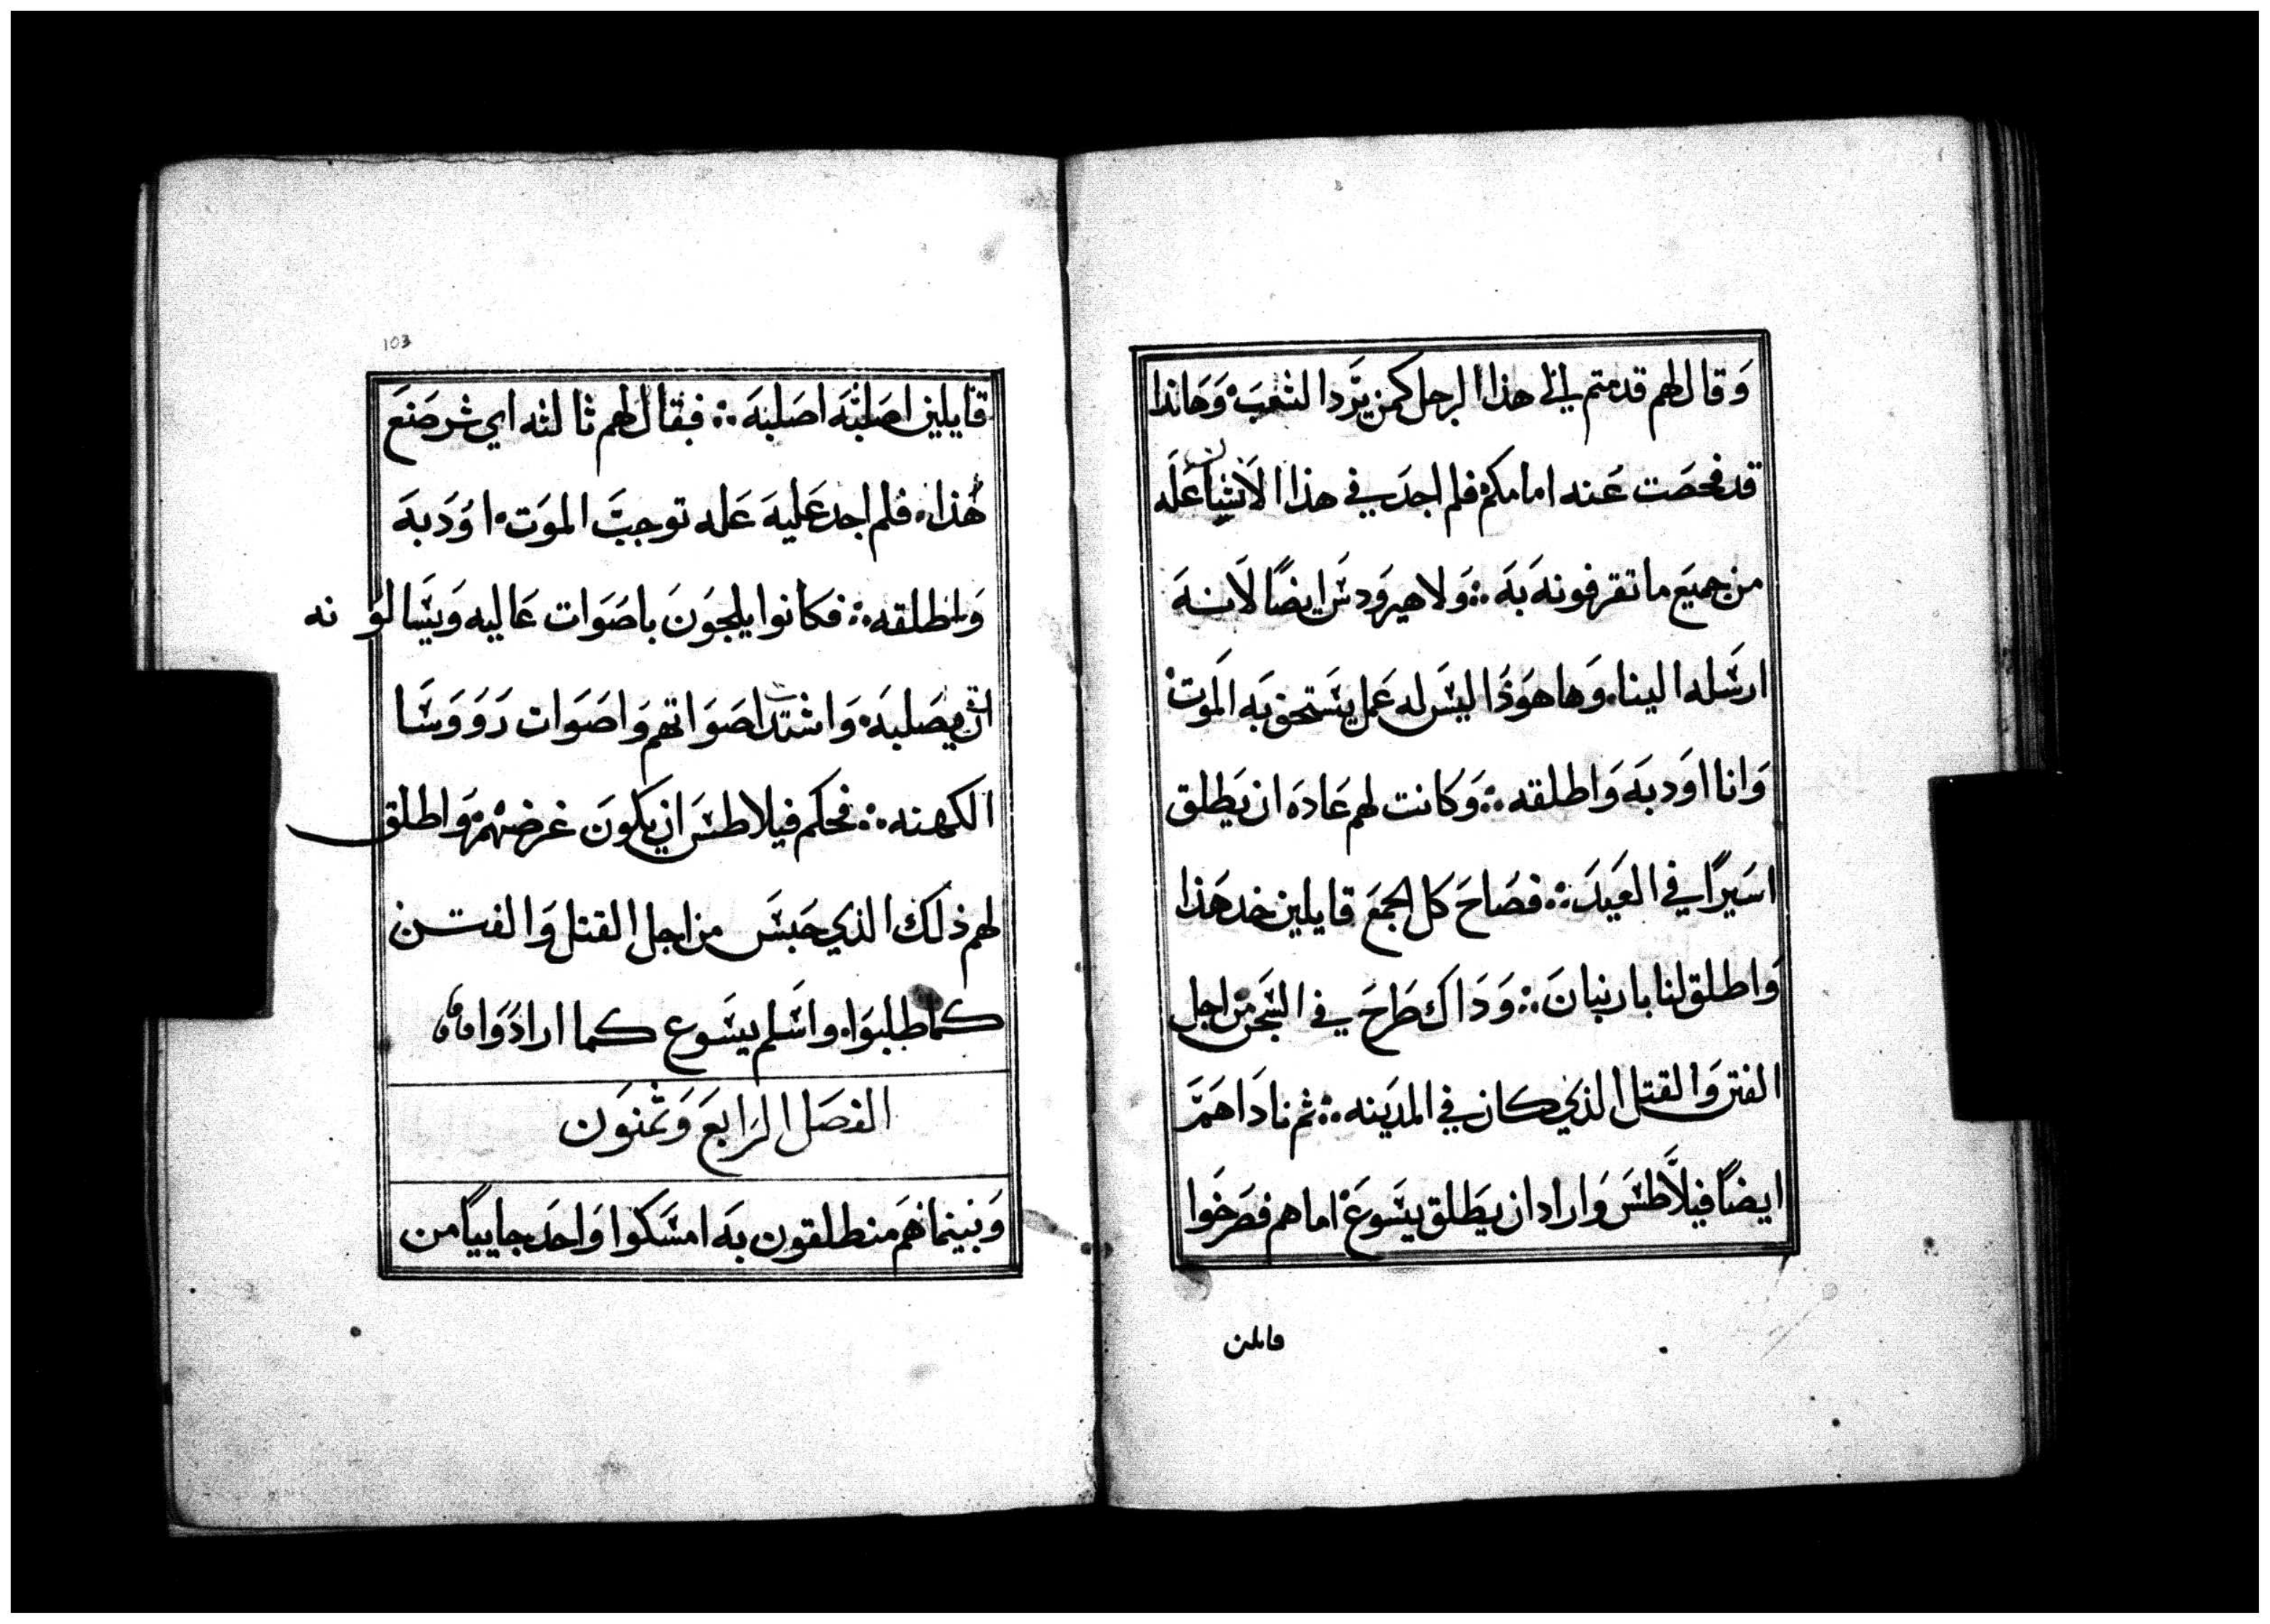 وَقال لهم قدمتم لي هذا الرجل كمن يَرد الشعبَ وَهَاندا
قد فحصَت عَنه امامكم فلم اجدَ في هذا الانسان عَله
من جميَع ما تقرفونه بَه ؞ وَلا هيروَدسَ ايضًا لَانهَ
ارسَله الينا وَها هوَذَا ليسَ له عَمل يسَتحق بَه الموَت
وَانا اوَدبَه وَاطلقه ؞ وَكانت لهم عَادَه ان يَطلق
اسَيرًا في العَيدَ ؞ فصَاحَ كل الجمعَ قايلين خد هَذا
وَاطلق لنا باربنانَ ؞ وَدَاك طَرحَ في السَجن من اجل
الفتن وَالقتل الذي كان في المديَنه ؞ ثم نادَاهَمَ
ايضًا فيلَاطسَ وَاراد ان يَطلق يسَوعَ اماهم فصَرخَوا
قايلين
103
قايلين اصَلبَه اصَلبَه ؞ فقال لهم ثالثه اي شر صَنعَ
هَذا فلم اجد عَليهَ عَله توجبَ الموَت اوَدبَهَ
وَاطلقه ؞ فكانوا يلجوَنَ باصَوَات عَاليه وَيسَالوَنه
ان يصَلبَه وَاشتدت اصَوَاتهم وَاصَوَات رَوَوَسَا
الكهنه ؞ فحكم فيلاطسَ ان يكوَنَ غرضهم وَاطلق
لهم ذلك الذي حَبسَ من اجل القتل وَالفتن
كما طلبوَا واسَلم يسَوع كما ارادوَا
الفصَل الرَابعَ وَثمنوَن
وَبَينما هَم منطلقون بَه امسَكوا وَاحَد جاييًا من